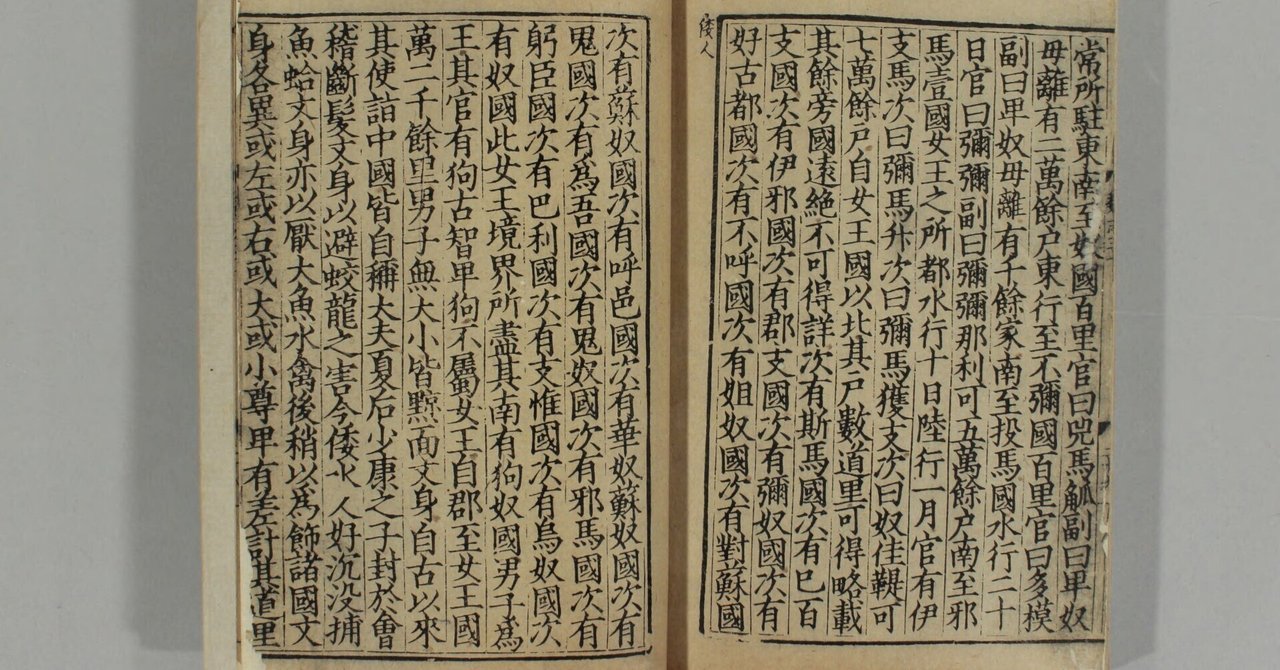 常所駐東南至奴國百里官曰兕馬觚副曰卑奴
毋離有二萬餘戶東行至不彌國百里官曰多模
副曰卑奴毋離有千餘家南至投馬國水行二十
日官曰彌彌副曰彌彌那利可五萬餘戶南至邪
馬壹國女王之所都水行十日陸行一月官有伊
支馬次曰彌馬升次曰彌馬獲支次曰奴佳鞮可
七萬餘戶自女王國以北其戶數道里可得略載
其餘旁國遠絶不可得詳次有斯馬國次有巳百
支國次有伊邪國次有郡支國次有彌奴國次有
好古都國次有不呼國次有姐奴國次有對蘇國
倭人
次有蘇奴國次有呼邑國次有華奴蘇奴國次有
鬼國次有爲吾國次有鬼奴國次有邪馬國次有
躬臣國次有巴利國次有支惟國次有烏奴國次
有奴國此女王境界所盡其南有狗奴國男子爲
王其官有狗古智卑狗不屬女王自郡至女王國
萬二千餘里男子無大小皆黥面文身自古以來
其使詣中國皆自稱大夫夏后少康之子封於會
稽斷髮文身以避蛟龍之害今倭水人好沉没捕
魚蛤文身亦以厭大魚水禽後稍以爲飾諸國文
身各異或左或右或大或小尊卑有差計其道里